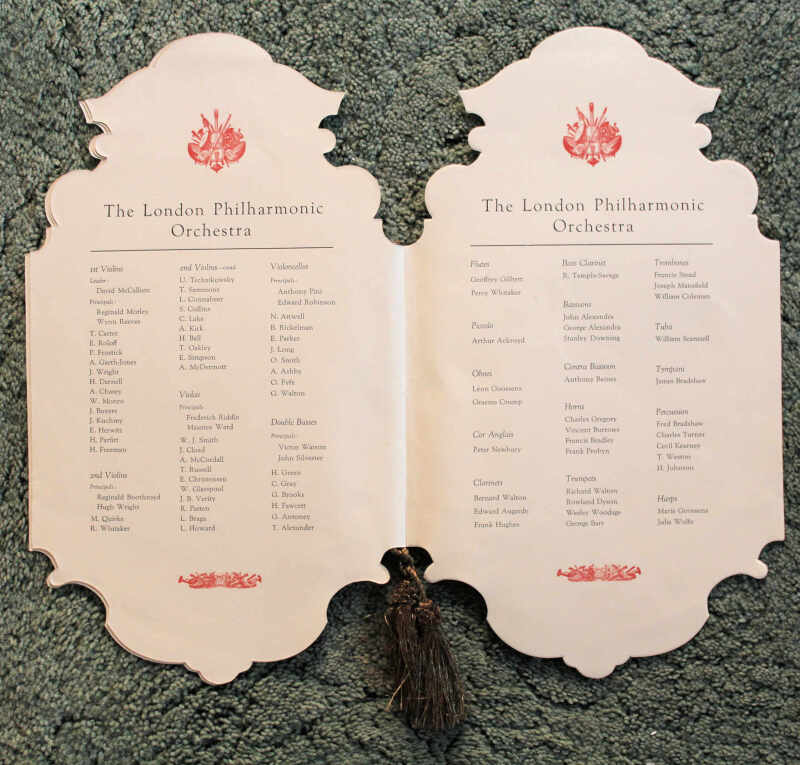 The London Philharmonic
Orchestra
1st Violins
Leader:
David McCallum
Principals:
Reginald Morley
Wynn Reeves
T. Carter
E. Roloff
P. Frostick
A. Garth-Jones
J. Wright
H. Darnell
A. Chasey
W. Monro
J. Bowers
J. Kuchmy
E. Horwitz
H. Parfitt
H. Freeman
2nd Violins
Principals:
Reginald Boothroyd
Hugh Wright
M. Quirke
R. Whitaker
2nd Violins—contd
U. Tschaikowsky
T. Sammons
L. Gonnalover
S. Collins
C. Lake
A. Kirk
H. Bell
T. Oakley
E. Simpson
A. McDermott
Violas
Principals
Frederick Riddle
Maurice Ward
W. J. Smith
J. Cloud
A. McCordall
T. Russell
E. Christensen
W. Glaspool
J. B. Verity
R. Patten
L. Braga
L. Howard
Violoncellos
Principals:
Anthony Pini
Edward Robinson
N. Attwell
B. Rickelman
E. Parker
J. Long
O. Smith
A. Ashby
O. Fyfe
G. Walton
Double Basses
Principals:
Victor Watson
John Silvester
H. Green
C. Gray
G. Brooks
H. Fawcett
G. Antoney
T. Alexander
The London Philharmonic
Orchestra
Flutes
Geoffrey Gilbert
Percy Whitaker
Piccolo
Arthur Ackroyd
Oboes
Léon Goossens
Graeme Crump
Cor Anglais
Peter Newbury
Clarinets
Bernard Walton
Edward Augarde
Frank Hughes
Bass Clarinet
R. Temple-Savage
Bassoons
John Alexandra
George Alexandra
Stanley Downing
Contra Bassoon
Anthony Baines
Horns
Charles Gregory
Vincent Burrows
Francis Bradley
Frank Probyn
Trumpets
Richard Walton
Rowland Dyson
Wesley Woodage
George Barr
Trombones
Francis Stead
Joseph Mansfield
William Coleman
Tuba
William Scannell
Tympani
James Bradshaw
Percussion
Fred Bradshaw
Charles Turner
Cecil Kearney
T. Weston
H. Johnson
Harps
Marie Goossens
Julia Wolfe